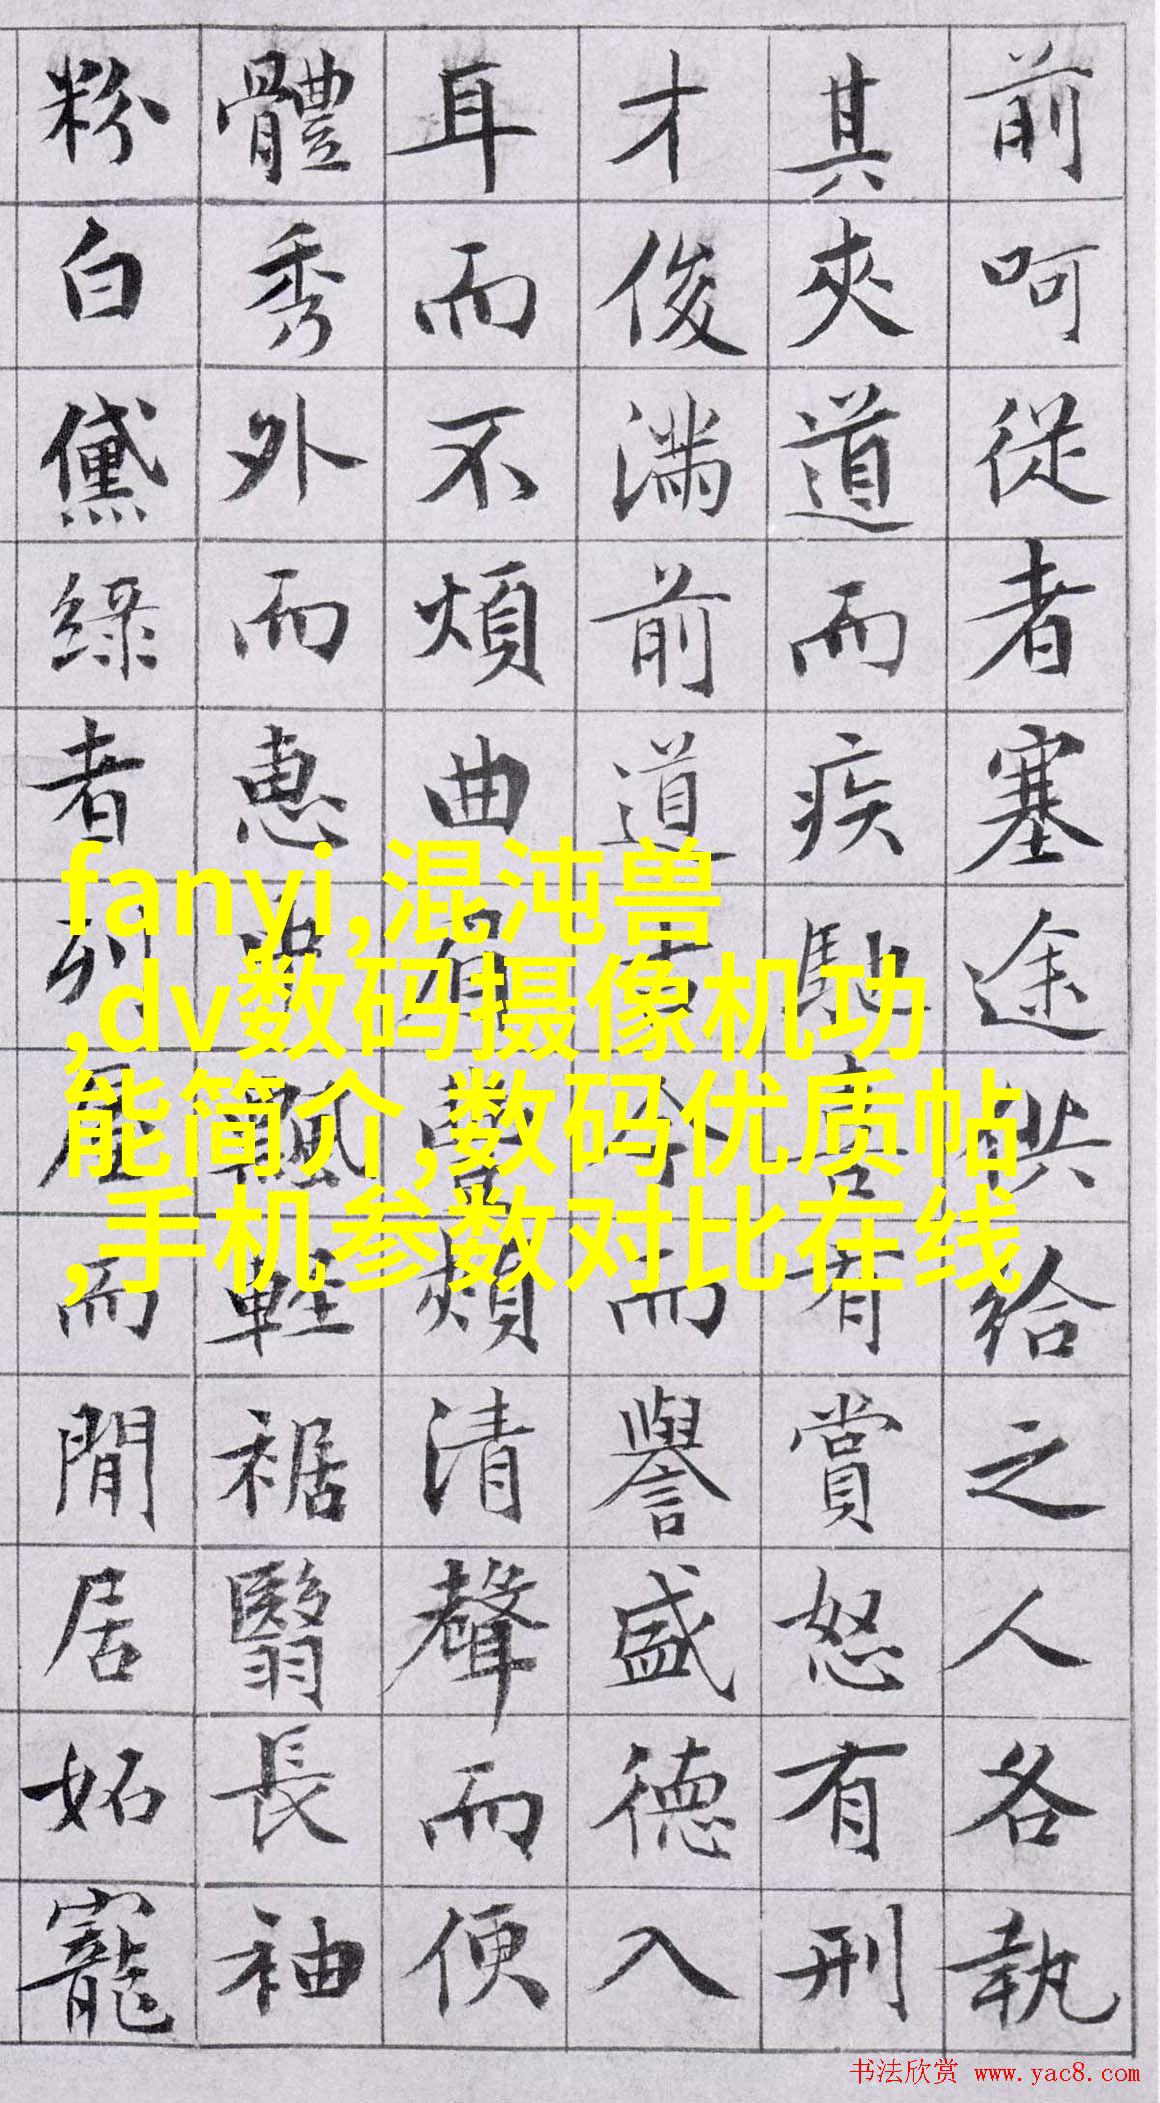 前呵從者塞途供給之人各執
其夾道而疾馳喜有賞怒有刑
才俊滿前道古今而譽盛德入
耳而不煩曲眉豐頰清聲而便
體秀外而惠中飄輕裾翳長袖
粉白黛綠者列屋而閒居妬寵
fanyi,混沌兽
,dv数码摄像机功
能简介,数码优质帖
,手机参数对比在线
书法欣赏 www.yac8.com